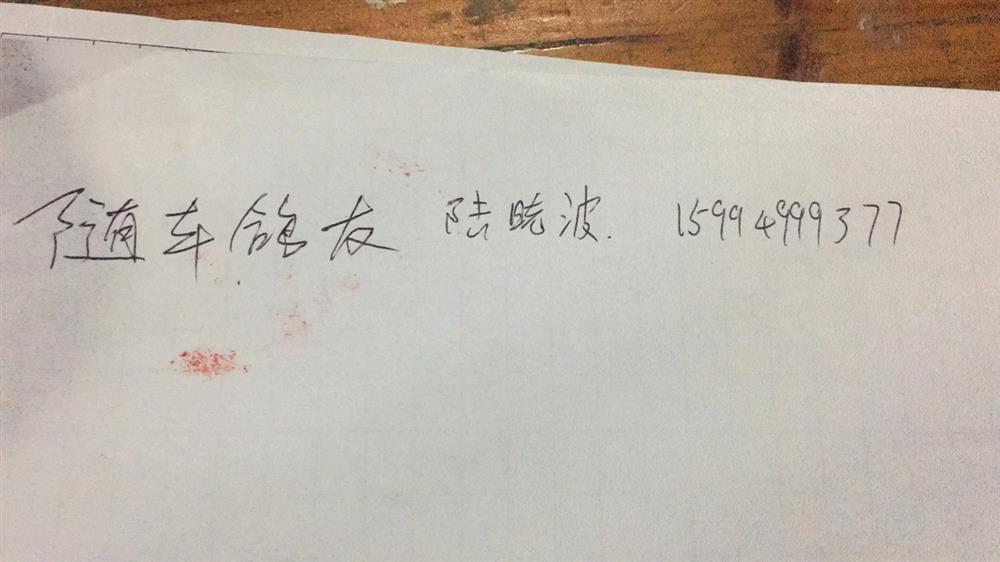 随车鸽友 陆晓波. 15994999377